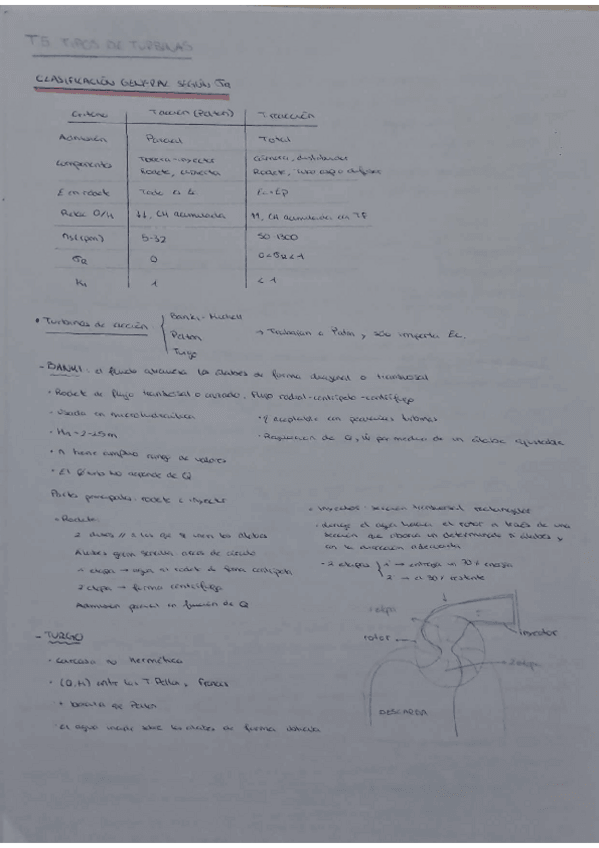 T5. TIPOS DE TURBINAS
CLASIFICACIÓN GENERAL SEGÚN σR
Criterio T acción (Pelton) T reacción
Admisión Parcial Total
Componentes Tobera-inyector Cámara, distribuidor
Rodete, carcasa Rodete, tubo asp o difusor
E en rodete Toda es Ec Ec+Ep
Relac Q/H ↓↓, CH acumulada ↑↑, CH
ns (rpm) 5-32 50-1300
σR 0 0<σR<1
1 <1
• Turbinas de acción: Banki-Michell
Pelton → Trabajan a Patm, sólo importa Ec.
Turgo
- BANKI: el fluido atraviesa los álabes de forma diagonal o transversal
• Rodete de flujo transversal o cruzado. Flujo radial-centrípeto-centrífugo
• Usada en microhidráulica
• aceptable con pequeñas turbinas
• Hn = 2-25m
• Regulación de Q, por medio de un álabe ajustable
• n tiene amplio rango de valores
• El no depende de Q
Partes principales: rodete e inyector
• Rodete:
2 discos // a los que se unen los álabes
Álabes son arcos de círculo
1 etapa → agua al rodete de forma centrípeta
2 etapa → forma centrífuga
Admisión parcial en función de Q
• Inyector: sección transversal rectangular
• dirige el agua hacia el rotor a través de una
sección que abarca un determinado nº álabes y
en la dirección adecuada
• 2 etapas 1 → entrega un 70% energía
2 → el 30% restante
1 etapa
rotor
inyector
2 etapa
DESCARGA
- TURGO
• carcasa no hermética
• (Q,H) entre las T Pelton y Francis
• el agua incide sobre los álabes de forma